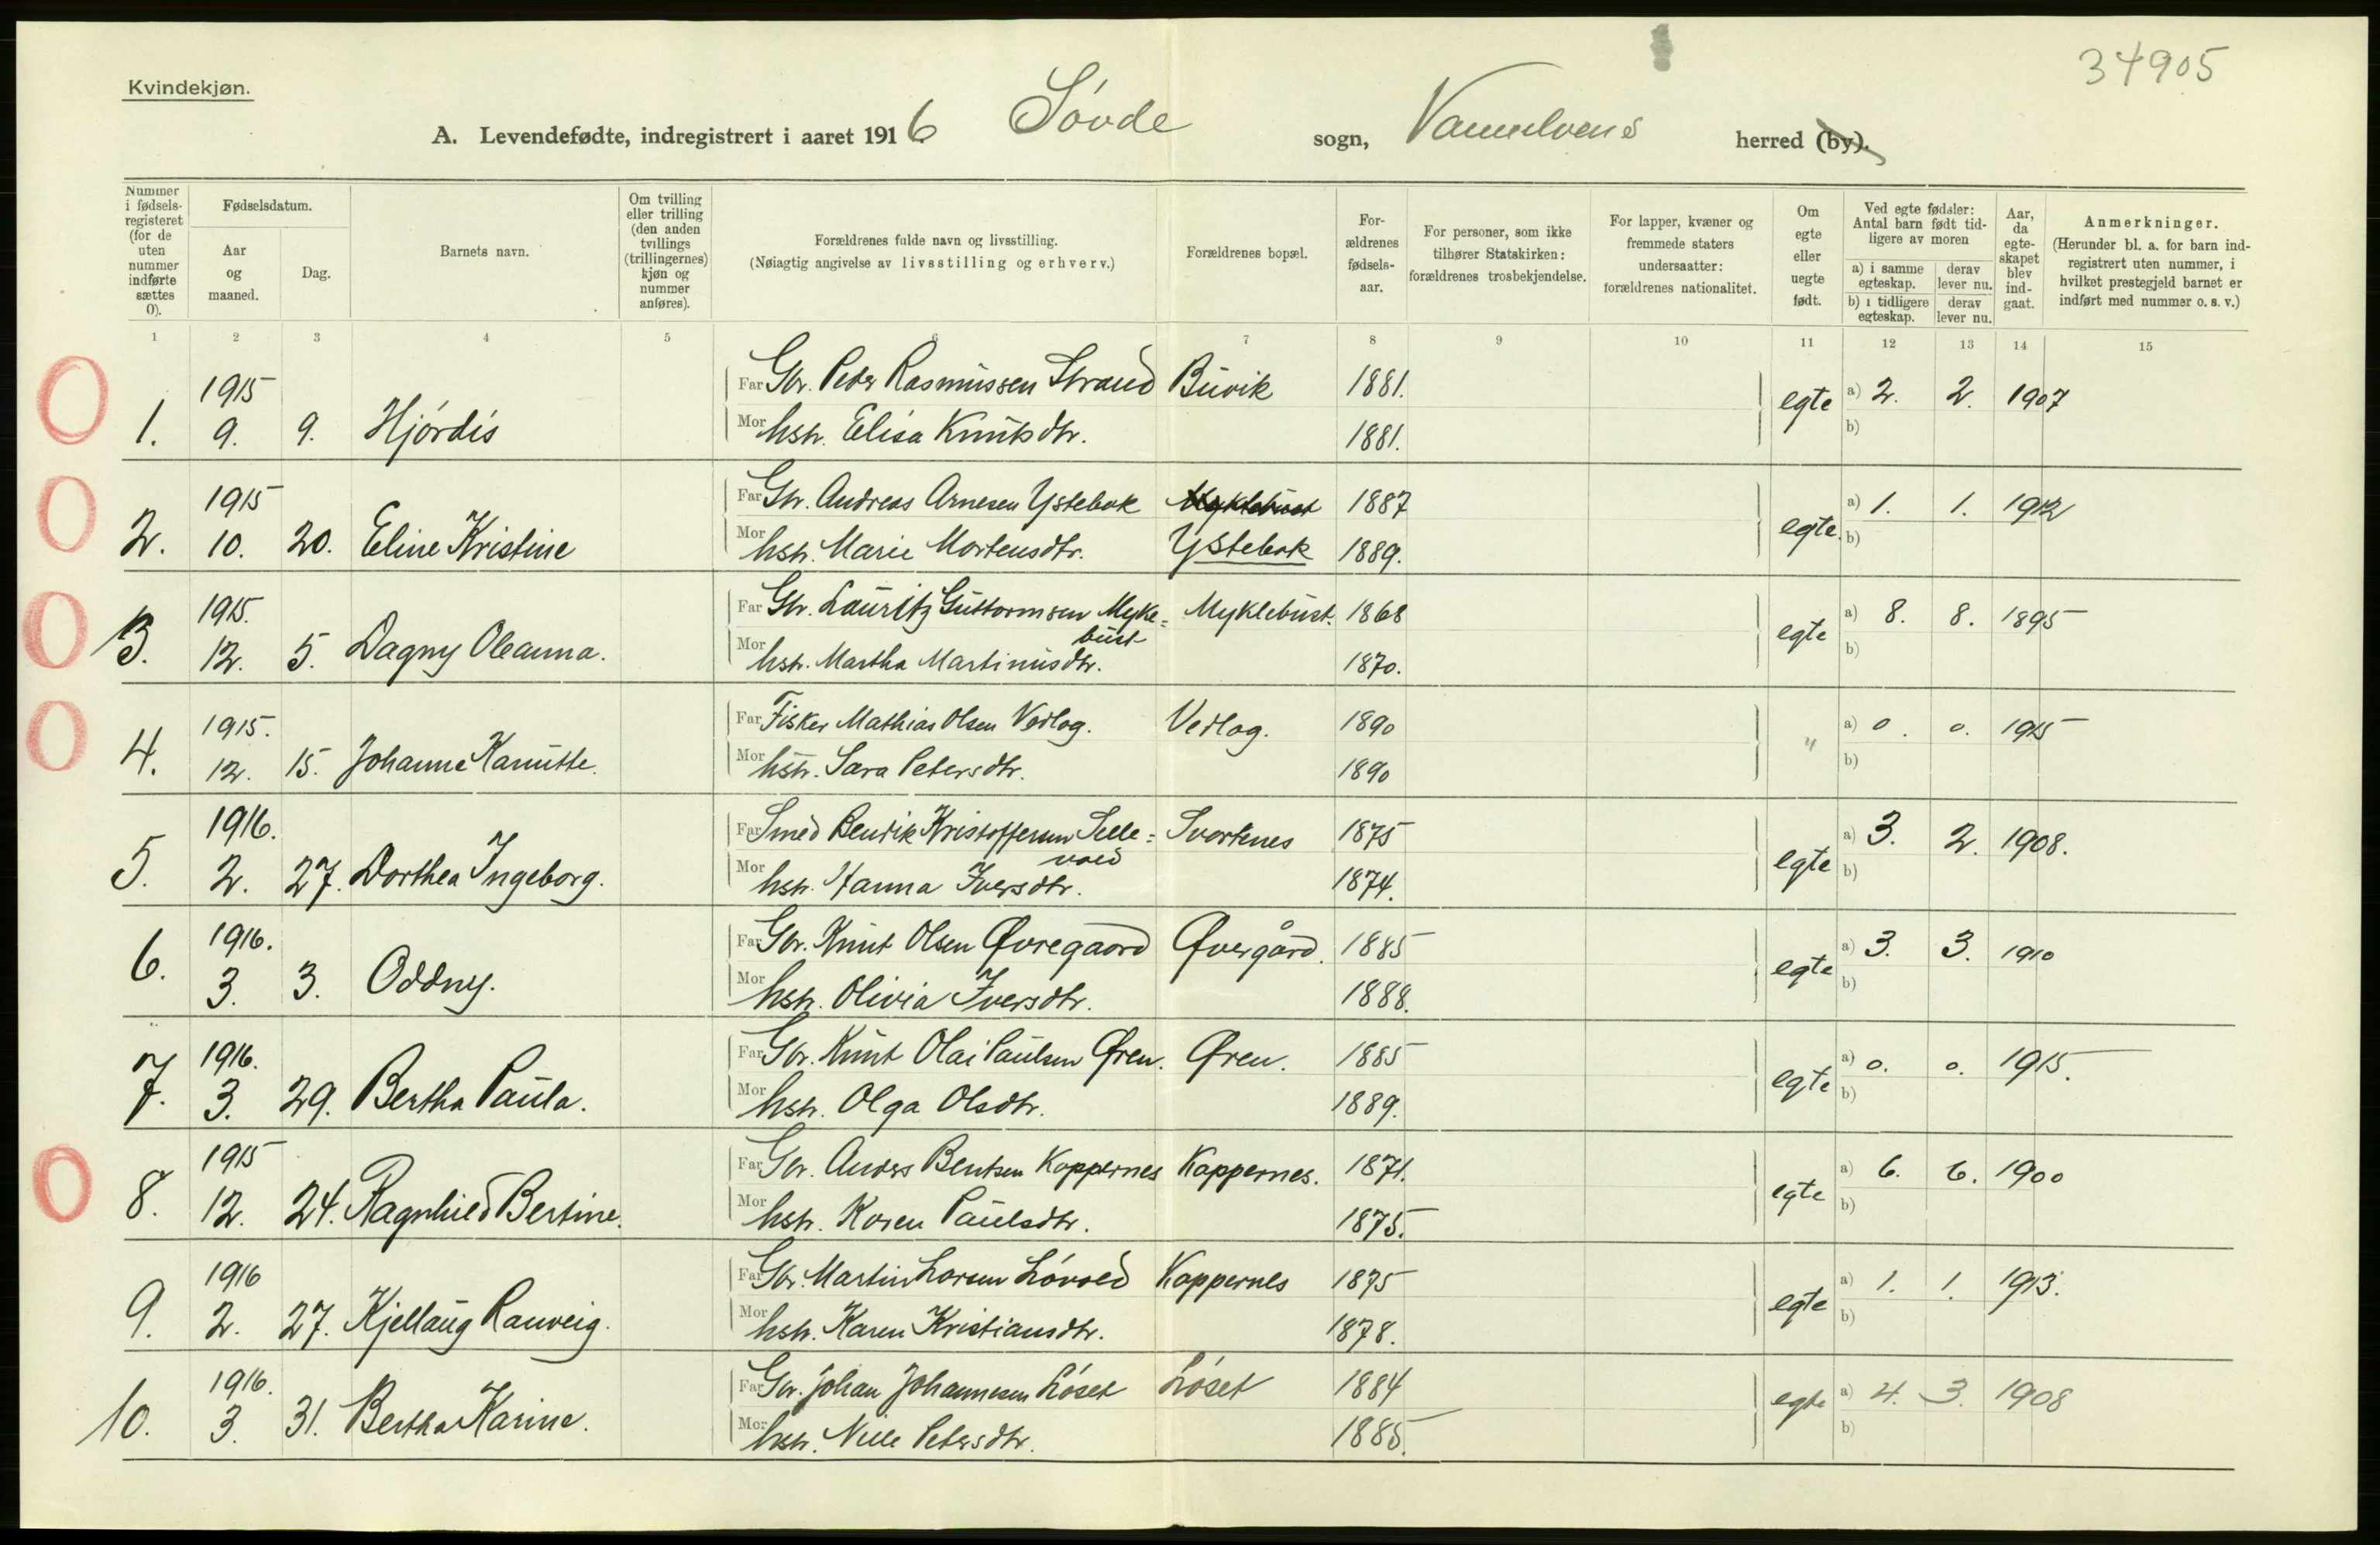 34905
Kvindekjøn.
A. Levendefødte, indregistrert i aaret 1916 Søvde sogn, Vannelvens herred (by).
Nummer i fødselsregisteret (for de uten nummer indførte sættes 0).
Fødselsdatum.
Aar og maaned.
Dag.
Barnets navn.
Om tvilling eller trilling (den anden tvillings (trillingernes) kjøn og nummer anføres).
Forældrenes fulde navn og livsstilling.
(Nøiagtig angivelse av livsstilling og erhverv.)
Forældrenes bopæl.
Forældrenes fødselsaar.
For personer, som ikke tilhører Statskirken: forældrenes trosbekjendelse.
For lapper, kvæner og fremmede staters undersaatter: forældrenes nationalitet.
Om egte eller uegte født.
Ved egte fødsler: Antal barn født tidligere av moren
a) i samme egteskap.
derav lever nu.
b) i tidligere egteskap.
derav lever nu.
Aar, da egteskapet blev indgaat.
Anmerkninger.
(Herunder bl. a. for barn indregistrert uten nummer, i hvilket prestegjeld barnet er indført med nummer o. s. v.)
1 2 3 4 5 6 7 8 9 10 11 12 13 14 15
1915 Far Gbr. Peder Rasmussen Strand Buvik 1881. egte a) 2. 2. 1907
1. 9. 9. Hjørdis Mor hstr. Elisa Knutsdtr. 1881. b)
1915 Far Gbr. Andreas Arnesen Ystebøk Myklebust 1887 egte. a) 1. 1. 1912
2. 10. 20. Eline Kristine Mor hstr. Marie Mortensdtr. Ystebøk 1889. b)
1915. Far Gbr. Lauritz Guttormsen Mykle= Myklebust. 1868 egte a) 8. 8. 1895
bust
3. 12. 5. Dagny Oleanna. Mor hstr. Martha Martinusdtr. 1870. b)
1915. Far Fisker Mathias Olsen Vedlog. Vedlog. 1890 " a) 0. 0. 1915
4. 12. 15. Johanne Kanutte. Mor hstr. Sara Petersdtr. 1890 b)
1916. Far Smed Bendik Kristoffersen Selle= Svortenes 1875 egte a) 3. 2. 1908.
vold
5. 2. 27. Dorthea Ingeborg. Mor hstr. Hanna Iversdtr. 1874. b)
1916. Far Gbr. Knut Olsen Øvregaard Øvergård. 1885 egte a) 3. 3. 1910
6. 3. 3. Oddny. Mor hstr. Olivia Iversdtr. 1888. b)
1916. Far Gbr. Knut Olai Paulsen Øren. Øren. 1885 egte a) 0. 0. 1915.
7. 3. 29. Bertha Paula. Mor hstr. Olga Olsdtr. 1889. b)
1915 Far Gbr. Anders Bentsen Koppernes Koppernes. 1871. egte a) 6. 6. 1900
8. 12. 24. Ragnhild Bertine. Mor hstr. Karen Paulsdtr. 1875. b)
1916 Far Gbr. Martin Larsen Løvold Koppernes 1875 egte a) 1. 1. 1913.
9. 2. 27. Kjellaug Ranveig. Mor hstr. Karen Kristiansdtr. 1878. b)
1916. Far Gbr. Johan Johannesen Løset Løset 1884 egte a) 4. 3. 1908
10. 3. 31. Bertha Karine. Mor hstr. Nille Petersdtr. 1885. b)